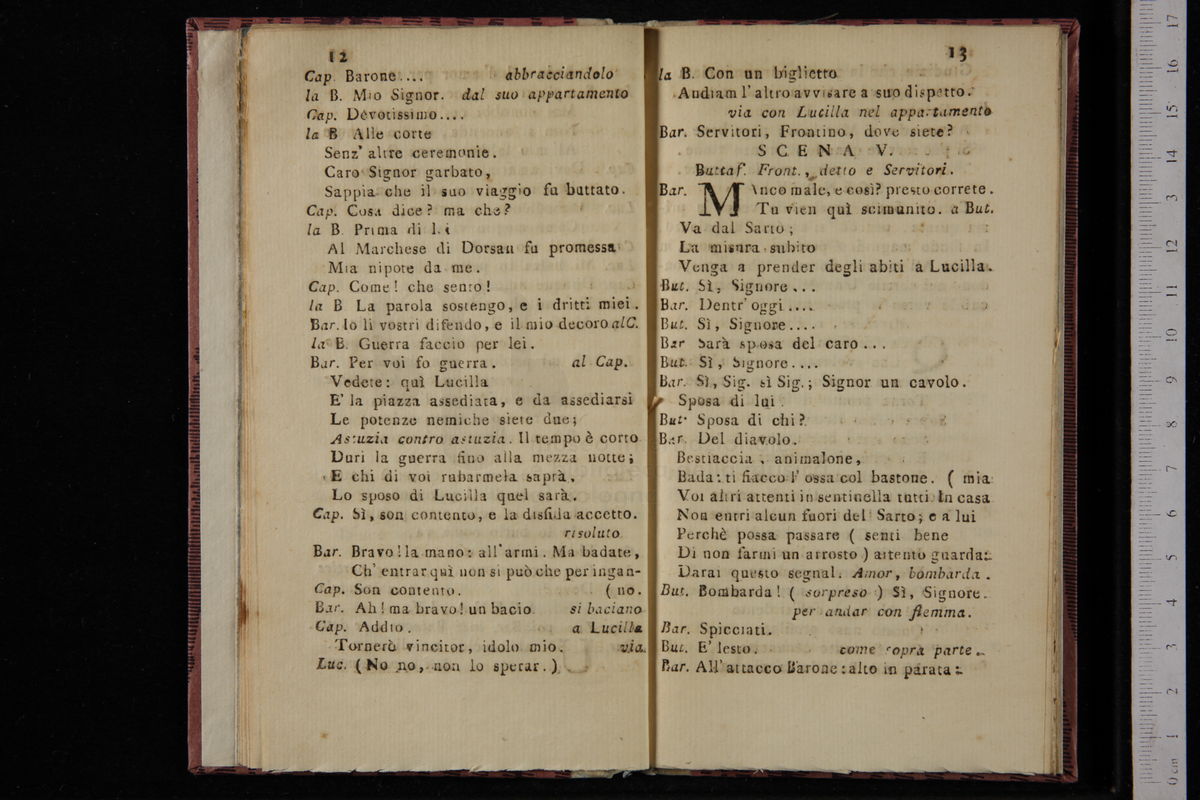 12
Cap. Barone.... abbracciandolo
la B. Mio Signor. dal suo appartamento
Cap. Devotissimo....
la B Alle corte
Senz' altre ceremonie.
Caro Signor garbato,
Sappia che il suo viaggio fu buttato.
Cap. Cosa dice? ma che?
la B. Prima di lei
Al Marchese di Dorsau fu promessa
Mia nipote da me.
Cap. Come! che sento!
la B La parola sostengo, e i dritti miei.
Bar. Io li vostri difendo, e il mio decoro al C.
la B. Guerra faccio per lei.
Bar. Per voi fo guerra. al Cap.
Vedete: quì Lucilla
E' la piazza assediata, e da assediarsi
Le potenze nemiche siete due;
Astuzia contro astuzia. Il tempo è corto
Duri la guerra fino alla mezza notte;
E chi di voi rubarmela saprà,
Lo sposo di Lucilla quel sarà.
Cap. Sì, son contento, e la disfida accetto.
risoluto
Bar. Bravo! la mano: all'armi. Ma badate,
Ch' entrar quì non si può che per ingan-
Cap. Son contento. ( no.
Bar. Ah! ma bravo! un bacio si baciano
Cap. Addio. a Lucilla
Tornerò vincitor, idolo mio. via.
Luc. (No no, non lo sperar.)
13
la B. Con un biglietto
Andiam l'altro avvisare a suo dispetto.
via con Lucilla nel appartamento
Bar. Servitori, Frontino, dove siete?
SCENA V.
Buttaf. Front., detto e Servitori.
Bar. MAnco male, e così? presto correte.
Tu vien quì scimunito. a But.
Va dal Sarto;
La misura subito
Venga a prender degli abiti a Lucilla.
But. Sì, Signore...
Bar. Dentr' oggi....
But. Sì, Signore....
Bar Sarà sposa del caro...
But. Sì, Signore....
Bar. Sì, Sig. sì Sig.; Signor un cavolo.
Sposa di lui.
But. Sposa di chi?
Bar. Del diavolo.
Bestiaccia, animalone,
Bada: ti fiacco l' ossa col bastone. ( mia
Voi altri attenti in sentinella tutti: In casa
Non entri alcun fuori del Sarto; e a lui
Perchè possa passare ( senti bene
Di non farmi un arrosto ) attento guarda:
Darai questo segnal. Amor, bombarda.
But. Bombarda! ( sorpreso ) Sì, Signore.
per andar con flemma.
Bar. Spicciati.
But. E' lesto. come sopra parte.
Bar. All' attacco Barone: alto in parata: